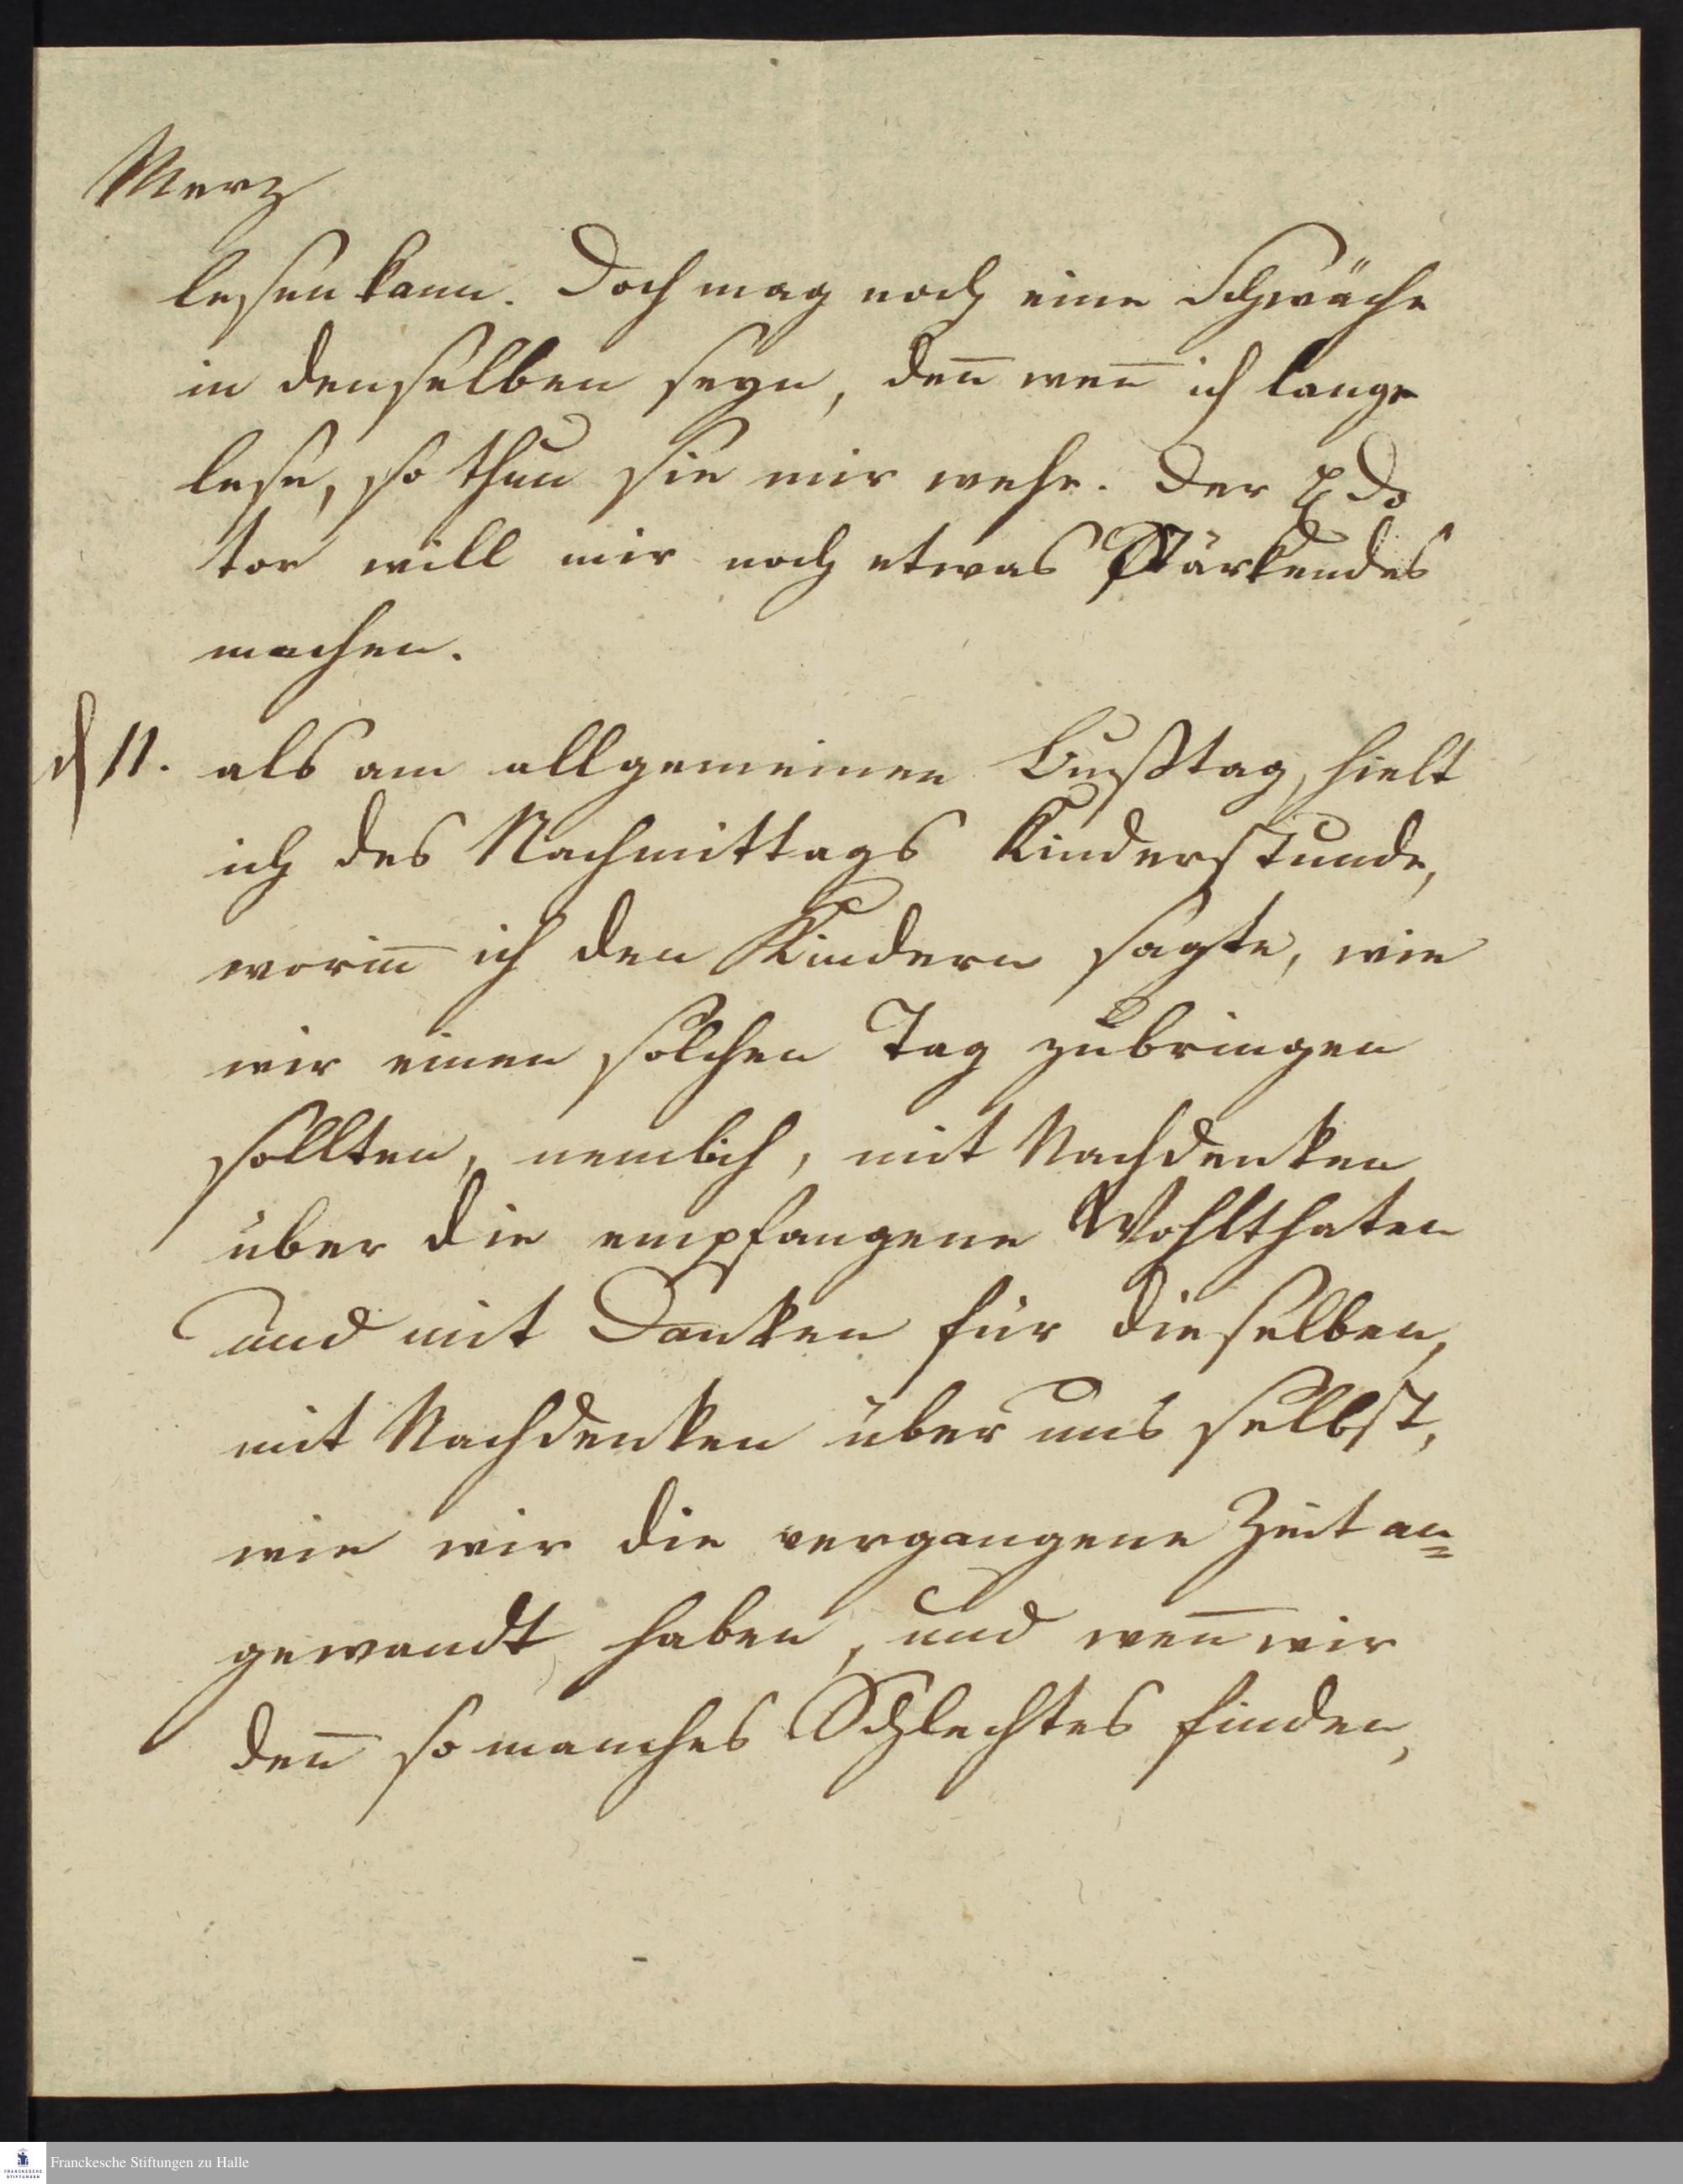 Merz
lesen kann. Doch mag noch eine Schwäche
in denselben seyn, den̄ wen̄ ich lange
lese, so thun sie mir wehe. Der
tor will mir noch etwas Stärkendes
machen.
d 11. als am allgemeinen Bußtag, hielt
ich des Nachmittags Kinderstunde,
worin̄ ich den Kindern sagte, wie
wir einen solchen Tag zubringen
sollten, nemlich, mit Nachdenken
über die empfangene Wohlthaten
und mit Danken für dieselben,
mit Nachdenken über uns selbst,
wie wir die vergangene Zeit an=
gewandt haben, und wen̄ wir
den̄ so manches Schlechtes finden,
Franckesche Stiftungen zu Halle
FRANCKESCHE
STIFTUNGEN